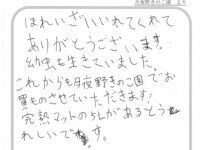 月夜野きのこ園 より
ほれいざいいれてくれて
ありがとうございます。
幼虫も生きていました。
これからも月夜野きのこ園でお
買ものさせていただきます!
完熟マットの5Lがあるとう
れしいです。